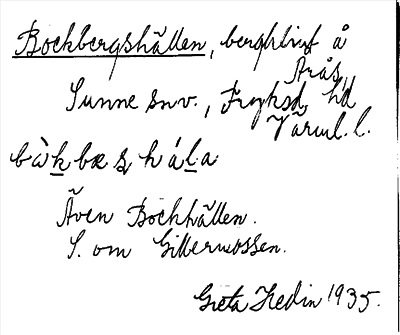 Bockbergshällen, bergklint å
Arås,
Sunne snv., Fryksd. h'd
Värml. l.
bàkbæshála
Även Bockhällen.
S. om Gillermossen.
Greta Hedin 1935.